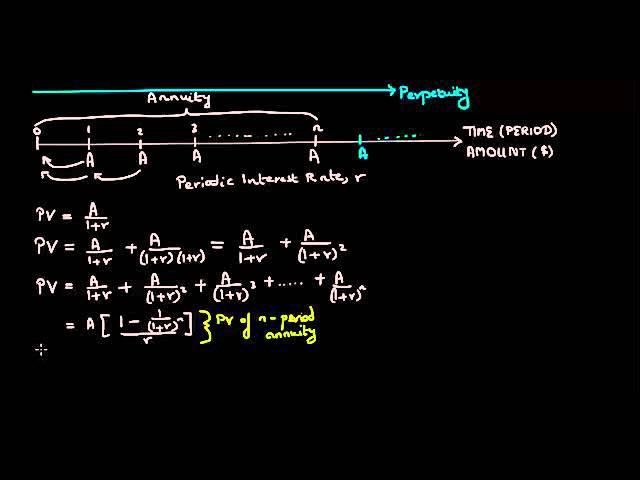 Perpetuity
Annuity
0 1 2 3 ...... ..... n ...... TIME (PERIOD)
A A A A A AMOUNT ($)
Periodic Interest Rate, r
PV = A/(1+r)
PV = A/(1+r) + A/((1+r)(1+r)) = A/(1+r) + A/(1+r)²
PV = A/(1+r) + A/(1+r)² + A/(1+r)³ + ..... + A/(1+r)ⁿ
= A [ (1 - 1/(1+r)ⁿ)/r ] } PV of n-period
annuity